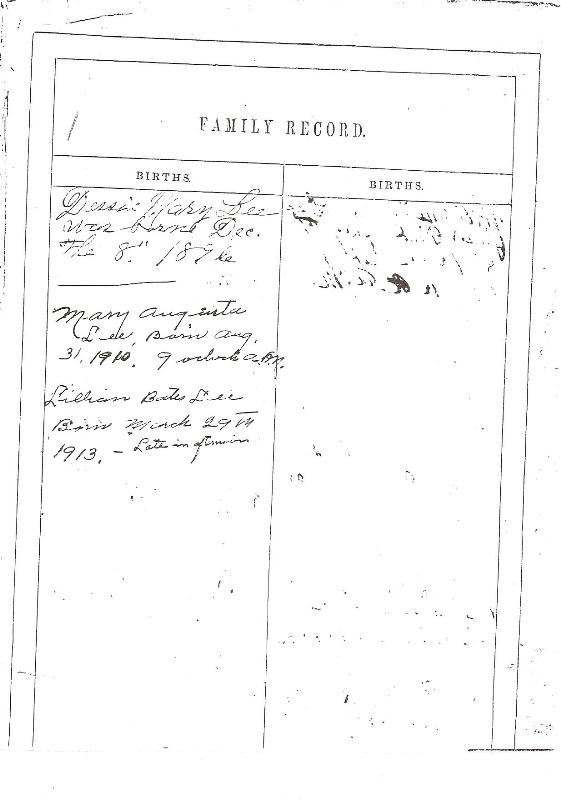 FAMILY RECORD.
BIRTHS.
Dessie Mary Lee
was borne Dec.
the 8". 189
Mary Augusta
Lee, Born Aug.
31, 1910. 9 oclock a.m.
Lillian Bates Lee
Born March 29th
1913. - Late in afternoon
BIRTHS.